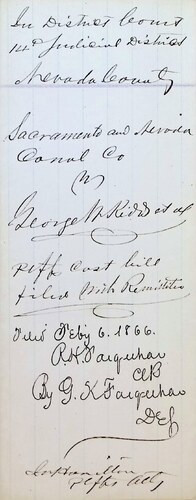 In District Court
14th Judicial District
Nevada County
Sacramento and Nevada
Canal Co
(v)
George W Kidd et al
Plffs Cost bill
filed with Remittitur
Filed Feby 6. 1866.
R. H. Farquhar
Clk
By G. K Farquhar
Dep
Hamilton
Plffs Atty